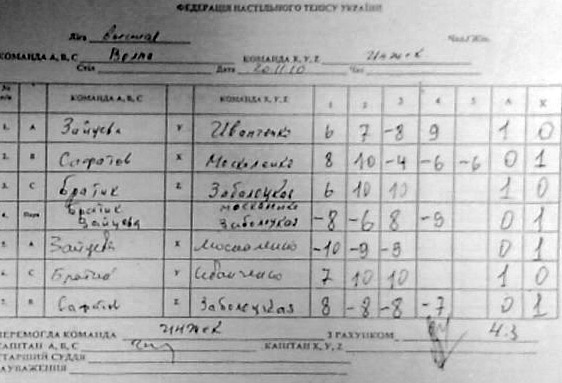 ФЕДЕРАЦІЯ НАСТІЛЬНОГО ТЕНІСУ УКРАЇНИ
Ліга Чол./Жін.
КОМАНДА A, B, C Волна КОМАНДА X, Y, Z ИНЖЕК
Стіл Дата 20.11.10 Час
№ п/п КОМАНДА A, B, C КОМАНДА X, Y, Z 1 2 3 4 5 A X
1. A Зайцева Y Иванченко 6 7 -8 9 1 0
2. B Сафатов X Москаленко 8 10 -4 -6 -6 0 1
3. C Братик Z Заболоцкая 6 10 10 1 0
4. Пара Братик Зайцева Москаленко Заболоцкая -8 -6 8 -9 0 1
5. A Зайцева X Москаленко -10 -9 -9 0 1
6. C Братик Y Иванченко 7 10 10 1 0
7. B Сафатов Z Заболоцкая 8 -8 -8 -7 0 1
ПЕРЕМОГЛА КОМАНДА ИНЖЕК З РАХУНКОМ 4:3
КАПІТАН A, B, C КАПІТАН X, Y, Z
СТАРШИЙ СУДДЯ
ЗАУВАЖЕННЯ